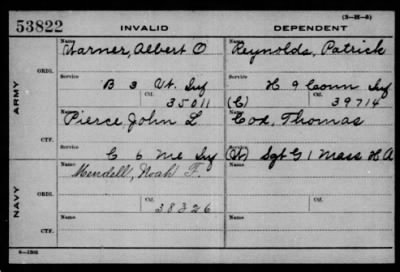 (3-H-6)
53822 INVALID DEPENDENT
Name Name
Warner, Albert O Reynolds, Patrick
ORIG.
Service Service
B 3 Vt. Inf H 9 Conn Inf
ARMY
Ctf. Ctf.
35011 (C) 39714
Name Name
Pierce, John L Cox, Thomas
CTF.
Service Service
C 6 Me Inf (W) Sgt G 1 Mass H A
Name Name
Mendell, Noah F.
ORIG.
NAVY
Ctf. Ctf.
38326
Name Name
CTF.